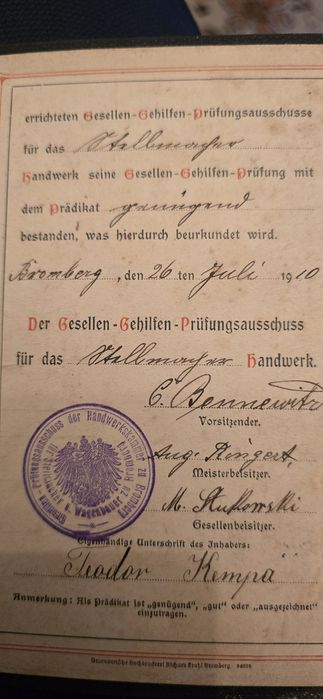 errichteten Gesellen-Gehilfen-Prüfungsausschusse
für das Stellmacher
Handwerk seine Gesellen-Gehilfen-Prüfung mit
dem Prädikat genügend
bestanden, was hierdurch beurkundet wird.
Bromberg, den 26 ten Juli 1910
Der Gesellen-Gehilfen-Prüfungsausschuss
für das Stellmacher Handwerk.
C. Bennewitz
Vorsitzender.
Aug. Ringert,
Meisterbeisitzer.
M. Stutkowski
Gesellenbeisitzer.
Prüfungsausschuss der Handwerkskammer zu Bromberg
Eigenhändige Unterschrift des Inhabers:
Teodor Kempa
Anmerkung: Als Prädikat ist „genügend", „gut" oder „ausgezeichnet"
einzutragen.
Buchdruckerei Richard Krahl Bromberg